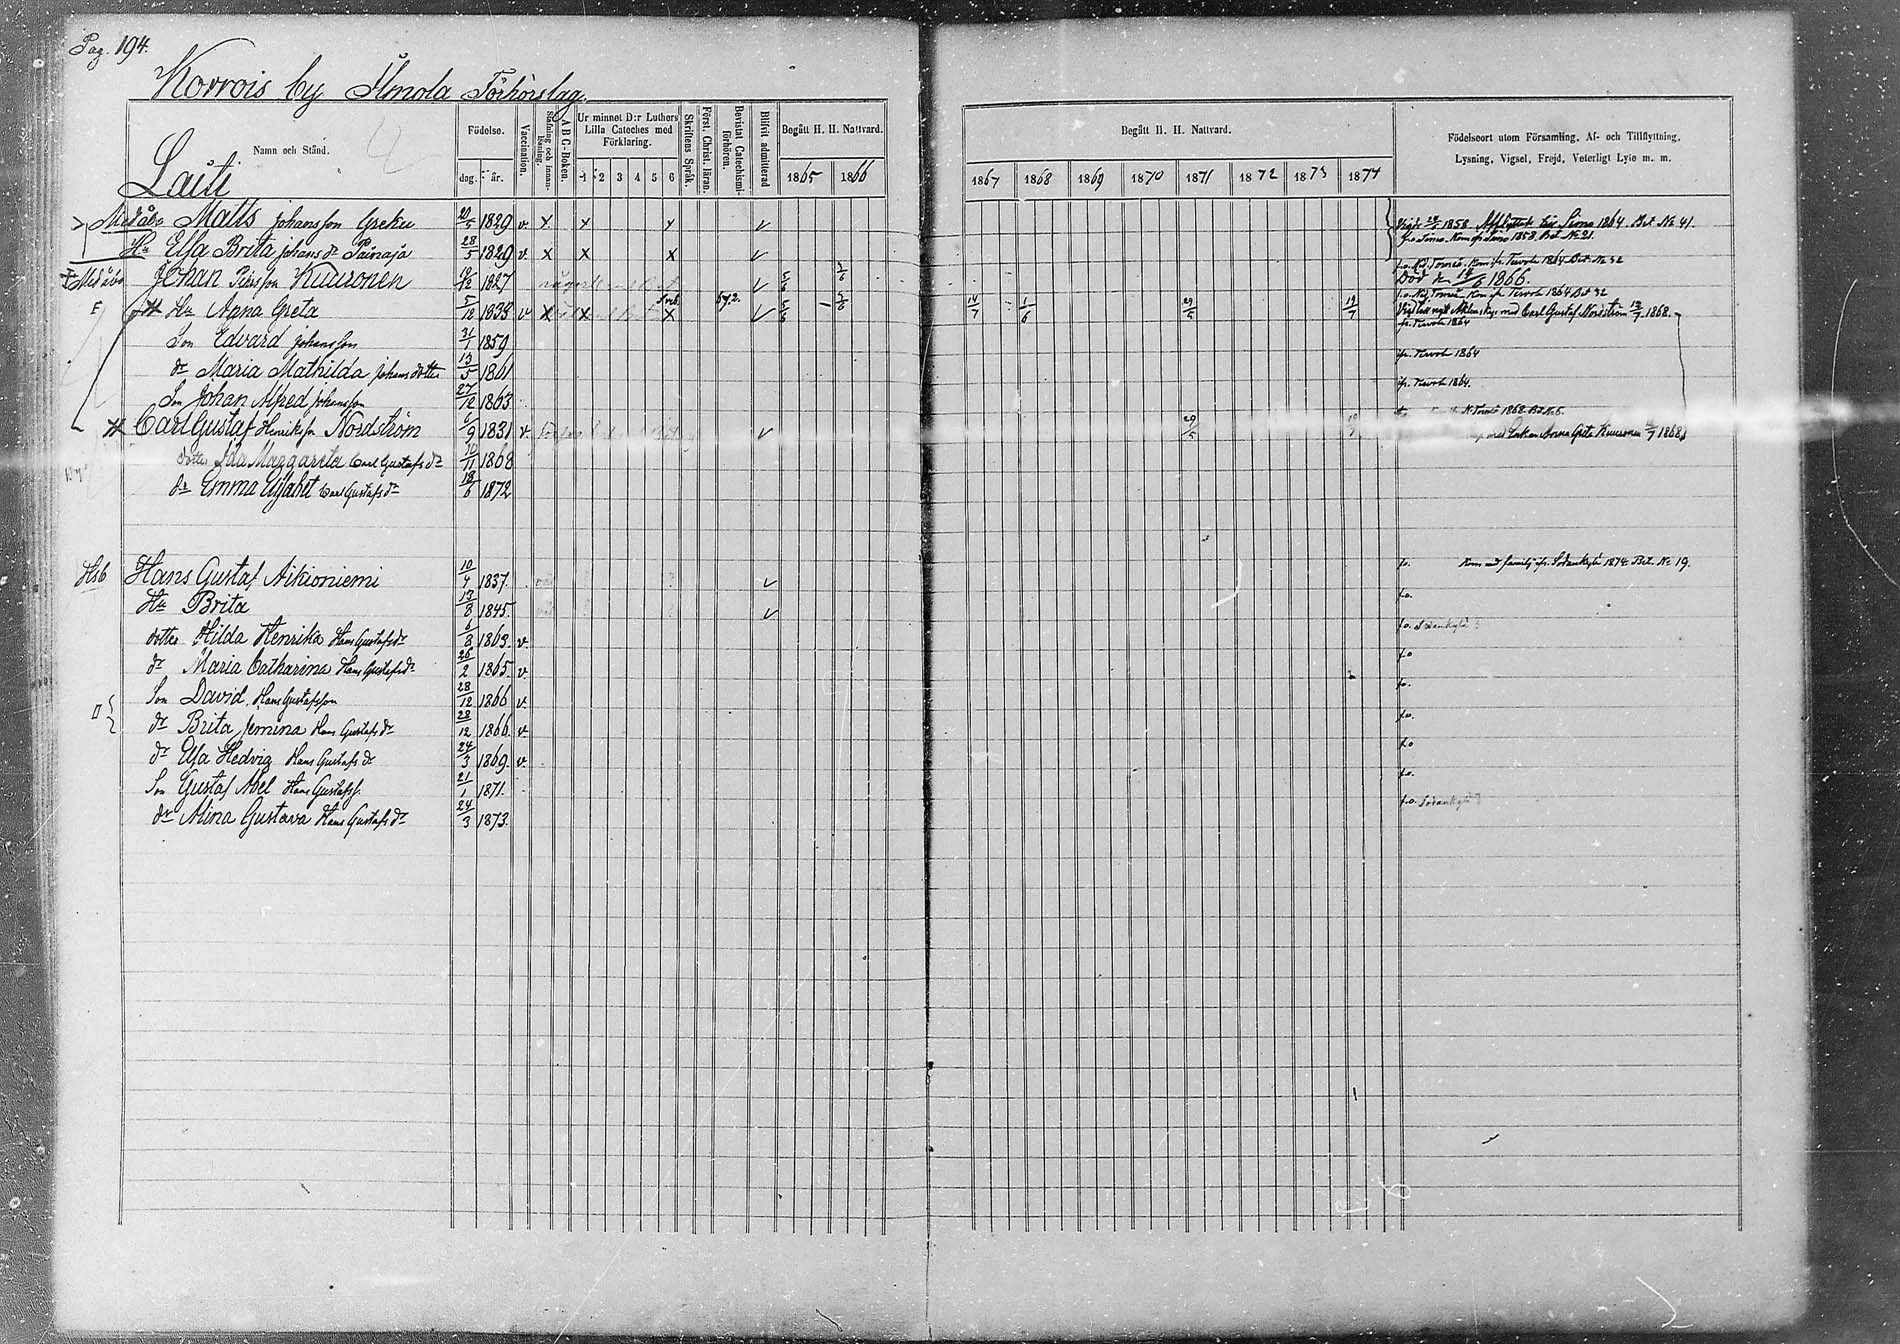 Pag. 194.
Korrois by Ilmola Förhörslag.
Laiti
Namn och Stånd.
Födelse.
dag. år.
Vaccination.
Stafning och innan-läsning.
A B C-Boken.
Ur minnet D:r Luthers Lilla Cateches med Förklaring.
1 2 3 4 5 6
Skriftens Språk.
Först. Christ. läran.
Bevistat Catechismi-förhören.
Blifvit admitterad
Begått H. H. Nattvard.
1865 1866
Begått H. H. Nattvard.
1867 1868 1869 1870 1871 1872 1873 1874
Födelseort utom Församling, Af- och Tillflyttning,
Lysning, Vigsel, Frejd, Veterligt Lyte m. m.
Medåbo Matts Johansson Greku 20/5 1829 v. x x x v 1858 Afflyttat till Simo 1864 Bet № 41.
Hu Elsa Brita Johans dr Päinäjä 28/5 1829 v. x x x v fr. Simo. Kom fr. Simo 1858. Bet № 21.
Medåbo Johan Pehrsson Kuuronen 12/12 1827 v f.o. Ned. Torneå. Kom fr. Tervola 1864 Bet. № 32
Död 1866.
Hu Anna Greta 5/12 1833 v x x x v 14/7 1/6 29/5 19/7 f.o. Ned. Torneå Kom fr. Tervola 1864 Bet 32
med Carl Gustaf Nordström 12/7 1868.
Son Edvard Johansson 31/1 1859 fr. Tervola 1864
dr Maria Mathilda Johansdotter 13/5 1861 fr. Tervola 1864
Son Johan Alfred Johansson 27/12 1863 fr. Tervola 1864.
Carl Gustaf Henriksson Nordström 6/9 1831 v. v 29/5 19/7 N. Torneå 1868. Bet № 6.
med Enkan Anna Greta Kuuronen 12/7 1868
dotter Ida Margareta Carl Gustafs dr 10/11 1868
dr Emma Elisabet Carl Gustafs dr 18/6 1872
Hsb Hans Gustaf Aikioniemi 10/4 1837. v f.o. Kom med familj fr. Sodankylä 1874. Bet. № 19.
Hu Brita 13/8 1845. v f.o.
dotter Hilda Henrika Hans Gustafsdr 6/8 1863. v. f.o. Sodankylä
dr Maria Catharina Hans Gustafsdr 26/2 1865. v f.o
Son David. Hans Gustafsson 28/12 1866 v f.o.
dr Brita Jemina Hans Gustafs dr 28/12 1866. v f.o.
dr Elsa Hedvig Hans Gustafs dr 24/3 1869. v f.o
Son Gustaf Abel Hans Gustafss. 21/1 1871. f.o.
dr Alina Gustava Hans Gustafs dr 24/3 1873. f.o. Sodankylä